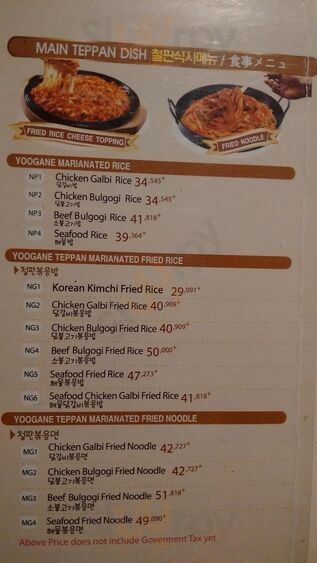 MAIN TEPPAN DISH 철판식사메뉴 / 食事メニュー
FRIED RICE CHEESE TOPPING
FRIED NOODLE
YOOGANE MARIANATED RICE
NP1 Chicken Galbi Rice 34,545+
닭갈비밥
NP2 Chicken Bulgogi Rice 34,545+
닭불고기밥
NP3 Beef Bulgogi Rice 41,818+
소불고기밥
NP4 Seafood Rice 39,364+
해물밥
YOOGANE TEPPAN MARIANATED FRIED RICE
▶철판볶음밥
NG1 Korean Kimchi Fried Rice 29,091+
NG2 Chicken Galbi Fried Rice 40,909+
닭갈비볶음밥
NG3 Chicken Bulgogi Fried Rice 40,909+
닭불고기볶음밥
NG4 Beef Bulgogi Fried Rice 50,000+
소불고기볶음밥
NG5 Seafood Fried Rice 47,273+
해물볶음밥
NG6 Seafood Chicken Galbi Fried Rice 41,818+
해물닭갈비볶음밥
YOOGANE TEPPAN MARIANATED FRIED NOODLE
▶철판볶음면
MG1 Chicken Galbi Fried Noodle 42,727+
닭갈비볶음면
MG2 Chicken Bulgogi Fried Noodle 42,727+
닭불고기볶음면
MG3 Beef Bulgogi Fried Noodle 51,818+
소불고기볶음면
MG4 Seafood Fried Noodle 49,090+
해물볶음면
Above Price does not include Goverment Tax yet